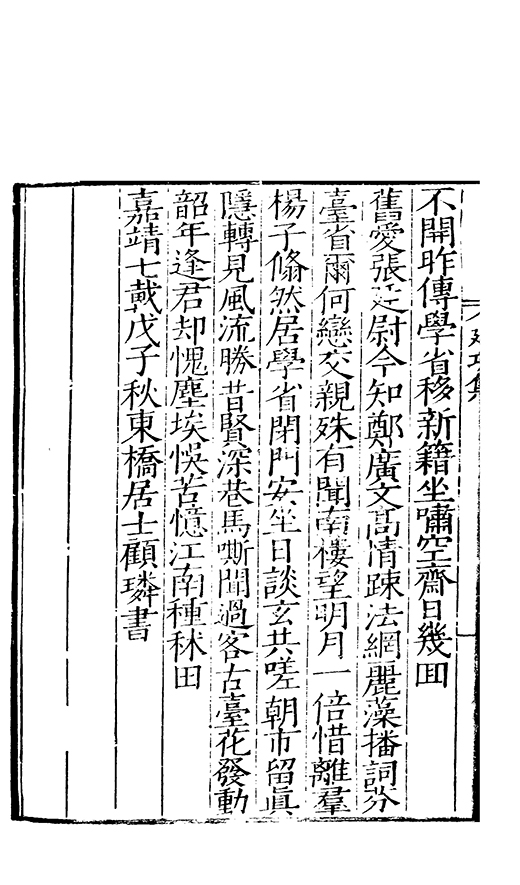 不開昨傳學省移新籍坐嘯空齋日幾囬
舊愛張廷尉今知鄭廣文髙情踈法網麗藻播詞芬
臺省爾何戀交親殊有聞南樓望明月一倍惜離羣
楊子翛然居學省閉門安坐日談玄共嗟朝市留眞
隱轉見風流勝昔賢深巷馬嘶聞過客古臺花發動
韶年逢君却愧塵埃悞苦憶江南種秫田
嘉靖七載戊子秋東橋居士顧璘書